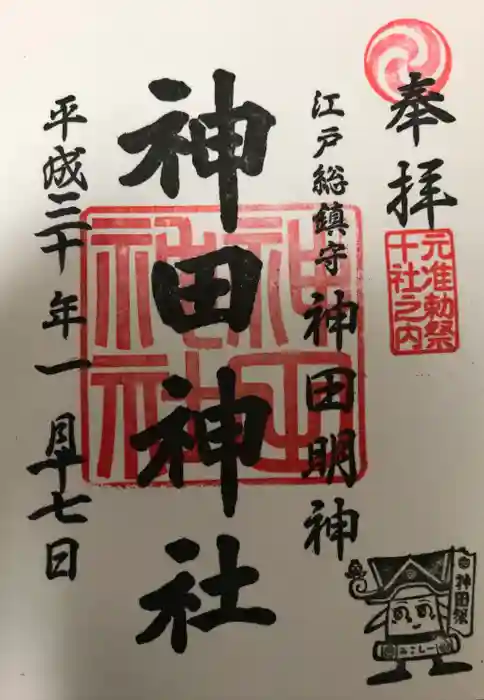 奉拝
元准勅祭
十社之内
江戸総鎮守 神田明神
神田神社
平成三十年一月十七日
神田祭
みこしー